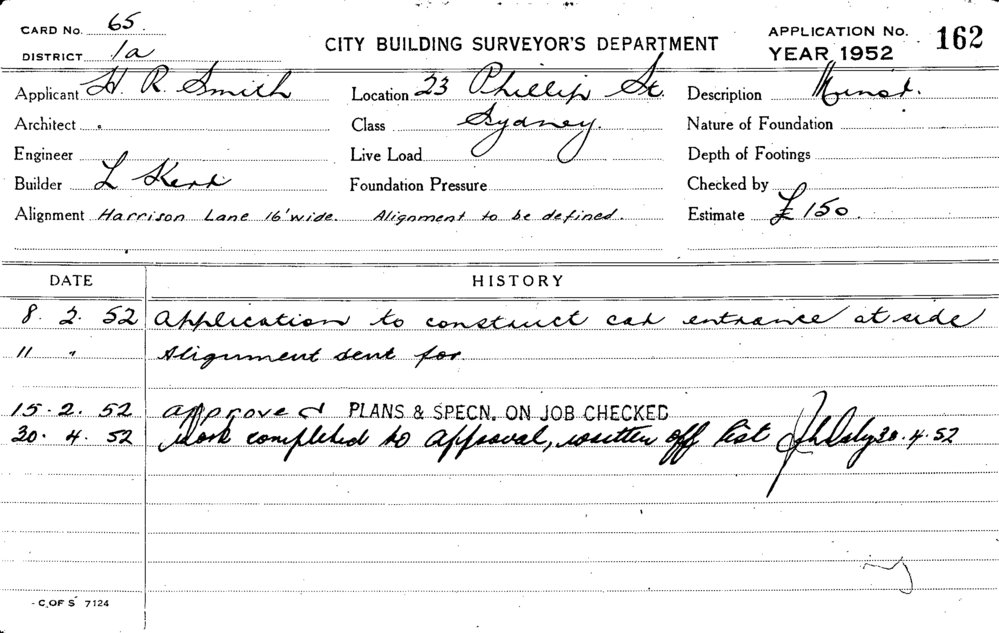 CARD No. 65.
DISTRICT 1a
CITY BUILDING SURVEYOR'S DEPARTMENT
APPLICATION No. 162
YEAR 1952
Applicant H. R. Smith
Location 23 Phillip St.
Description
Architect
Class Sydney.
Nature of Foundation
Engineer
Live Load
Depth of Footings
Builder L Kerr
Foundation Pressure
Checked by
Alignment Harrison Lane 16' wide. Alignment to be defined.
Estimate £150.
DATE HISTORY
8. 2. 52 Application to construct car entrance at side
11 " Alignment sent for
15. 2. 52 approved PLANS & SPECN. ON JOB CHECKED
30. 4. 52 Work completed to approval, written off list 30. 4. 52
C. OF S 7124